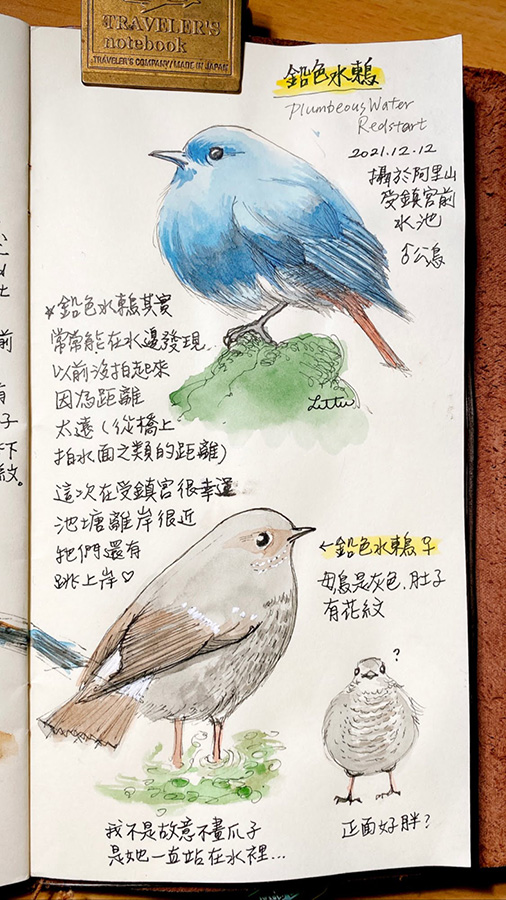 TRAVELER'S
notebook
TRAVELER'S COMPANY/MADE IN JAPAN
鉛色水鶇
Plumbeous Water
Redstart
2021.12.12
攝於阿里山
受鎮宮前
水池
公鳥
*鉛色水鶇其實
常常能在水邊發現
以前沒拍起來
因為距離
太遠(從橋上
拍水面之類的距離)
這次在受鎮宮很幸運
池塘離岸很近
牠們還有
跳上岸♡
Littu
←鉛色水鶇♀
母鳥是灰色,肚子
有花紋
?
我不是故意不畫爪子
是她一直站在水裡...
正面好胖?
前
有
子
下
紋。